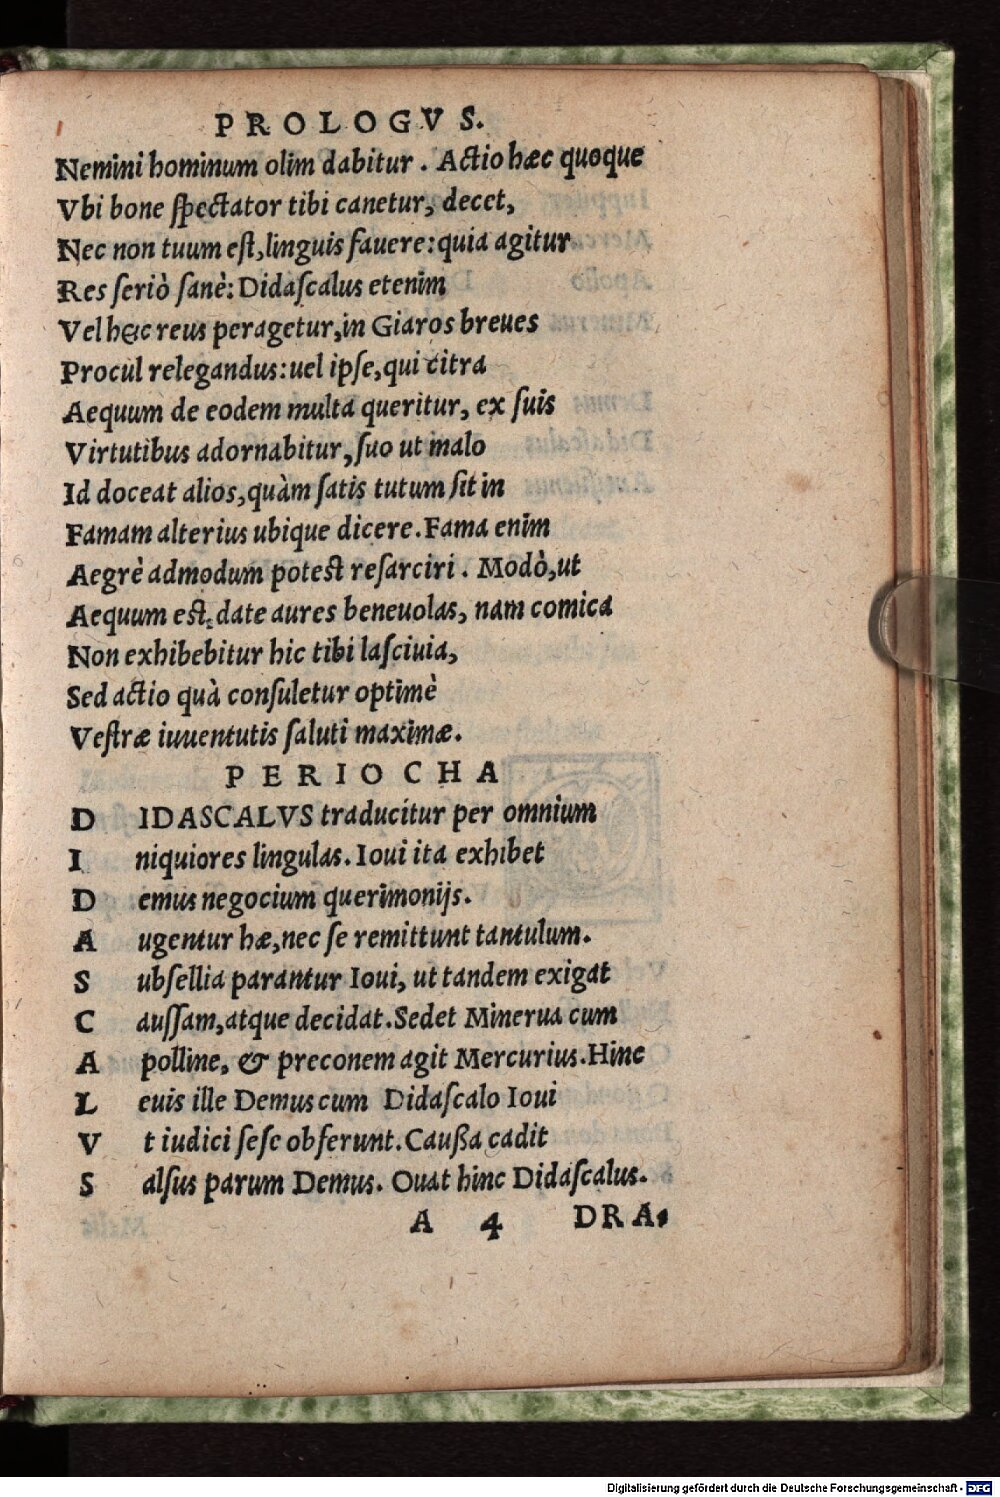 PROLOGVS.
Nemini hominum olim dabitur. Actio hæc quoque
Vbi bone ſpectator tibi canetur, decet,
Nec non tuum eſt, linguis fauere: quia agitur
Res ſeriò ſanè: Didaſcalus etenim
Vel hęc reus peragetur, in Giaros breues
Procul relegandus: uel ipſe, qui citra
Aequum de eodem multa queritur, ex ſuis
Virtutibus adornabitur, ſuo ut malo
Id doceat alios, quàm ſatis tutum ſit in
Famam alterius ubique dicere. Fama enim
Aegrè admodum potest reſarciri. Modò, ut
Aequum eſt, date aures beneuolas, nam comica
Non exhibebitur hic tibi laſciuia,
Sed actio quà conſuletur optimè
Veſtræ iuuentutis ſaluti maximæ.
PERIOCHA
D IDASCALVS traducitur per omnium
I niquiores lingulas. Ioui ita exhibet
D emus negocium querimonijs.
A ugentur hæ, nec ſe remittunt tantulum.
S ubſellia parantur Ioui, ut tandem exigat
C auſſam, atque decidat. Sedet Minerua cum
A polline, & preconem agit Mercurius. Hinc
L euis ille Demus cum Didaſcalo Ioui
V t iudici ſeſe obferunt. Caußa cadit
S alſus parum Demus. Ouat hinc Didaſcalus.
A 4 DRA,
Digitalisierung gefördert durch die Deutsche Forschungsgemeinschaft - DFG